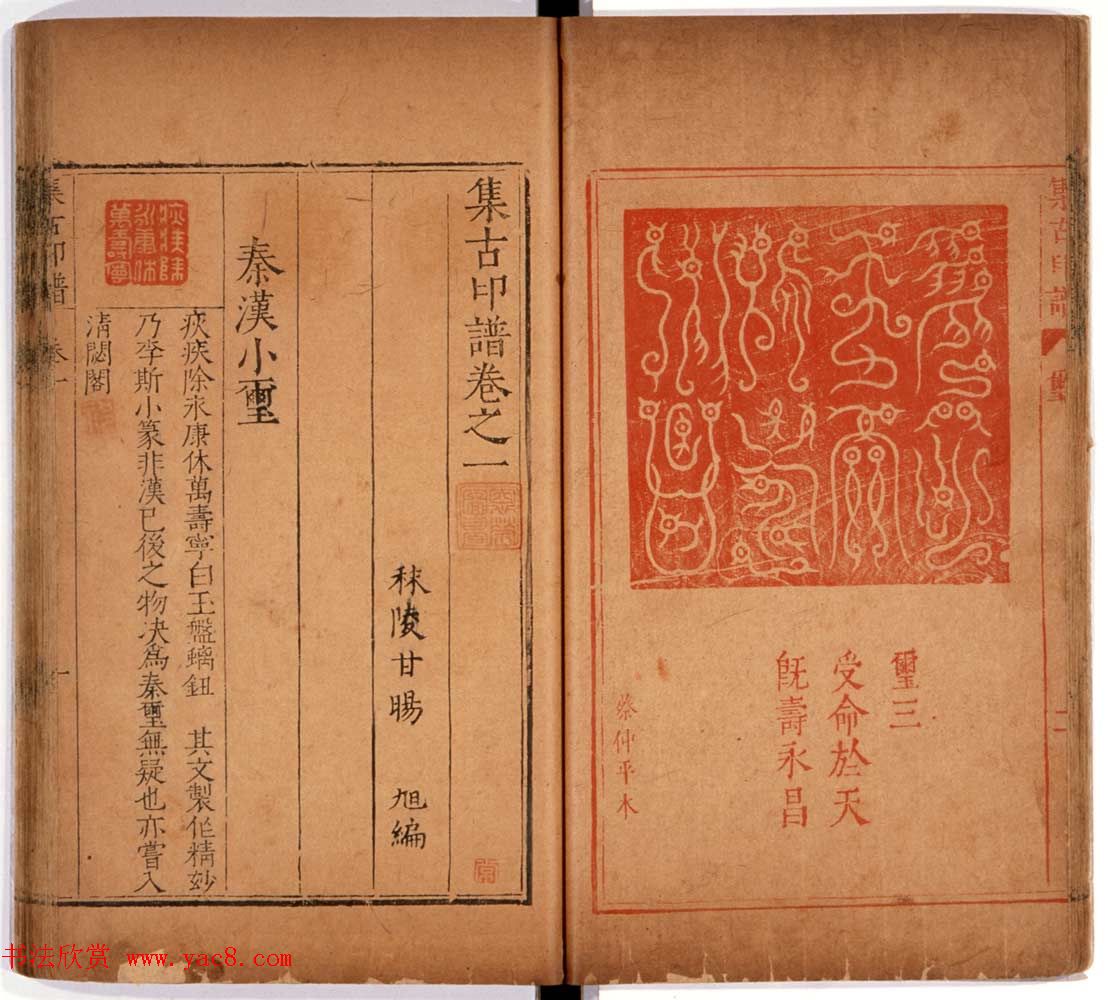 璽三
受命於天
旣壽永昌
蔡仲平木
集古印譜
璽
二
集古印譜卷之一
秣陵甘暘 旭編
秦漢小璽
疢疾除永康休萬壽寧白玉盤螭鈕 其文製作精妙
乃李斯小篆非漢已後之物決為秦璽無疑也亦嘗入
清閟閣
疢疾除
永康休
萬壽寧
集古印譜 卷一
一
书法欣赏 www.yac8.com